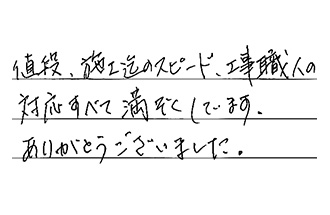 値段、施工迄のスピード、工事職人の
対応すべて満ぞくしています。
ありがとうございました。